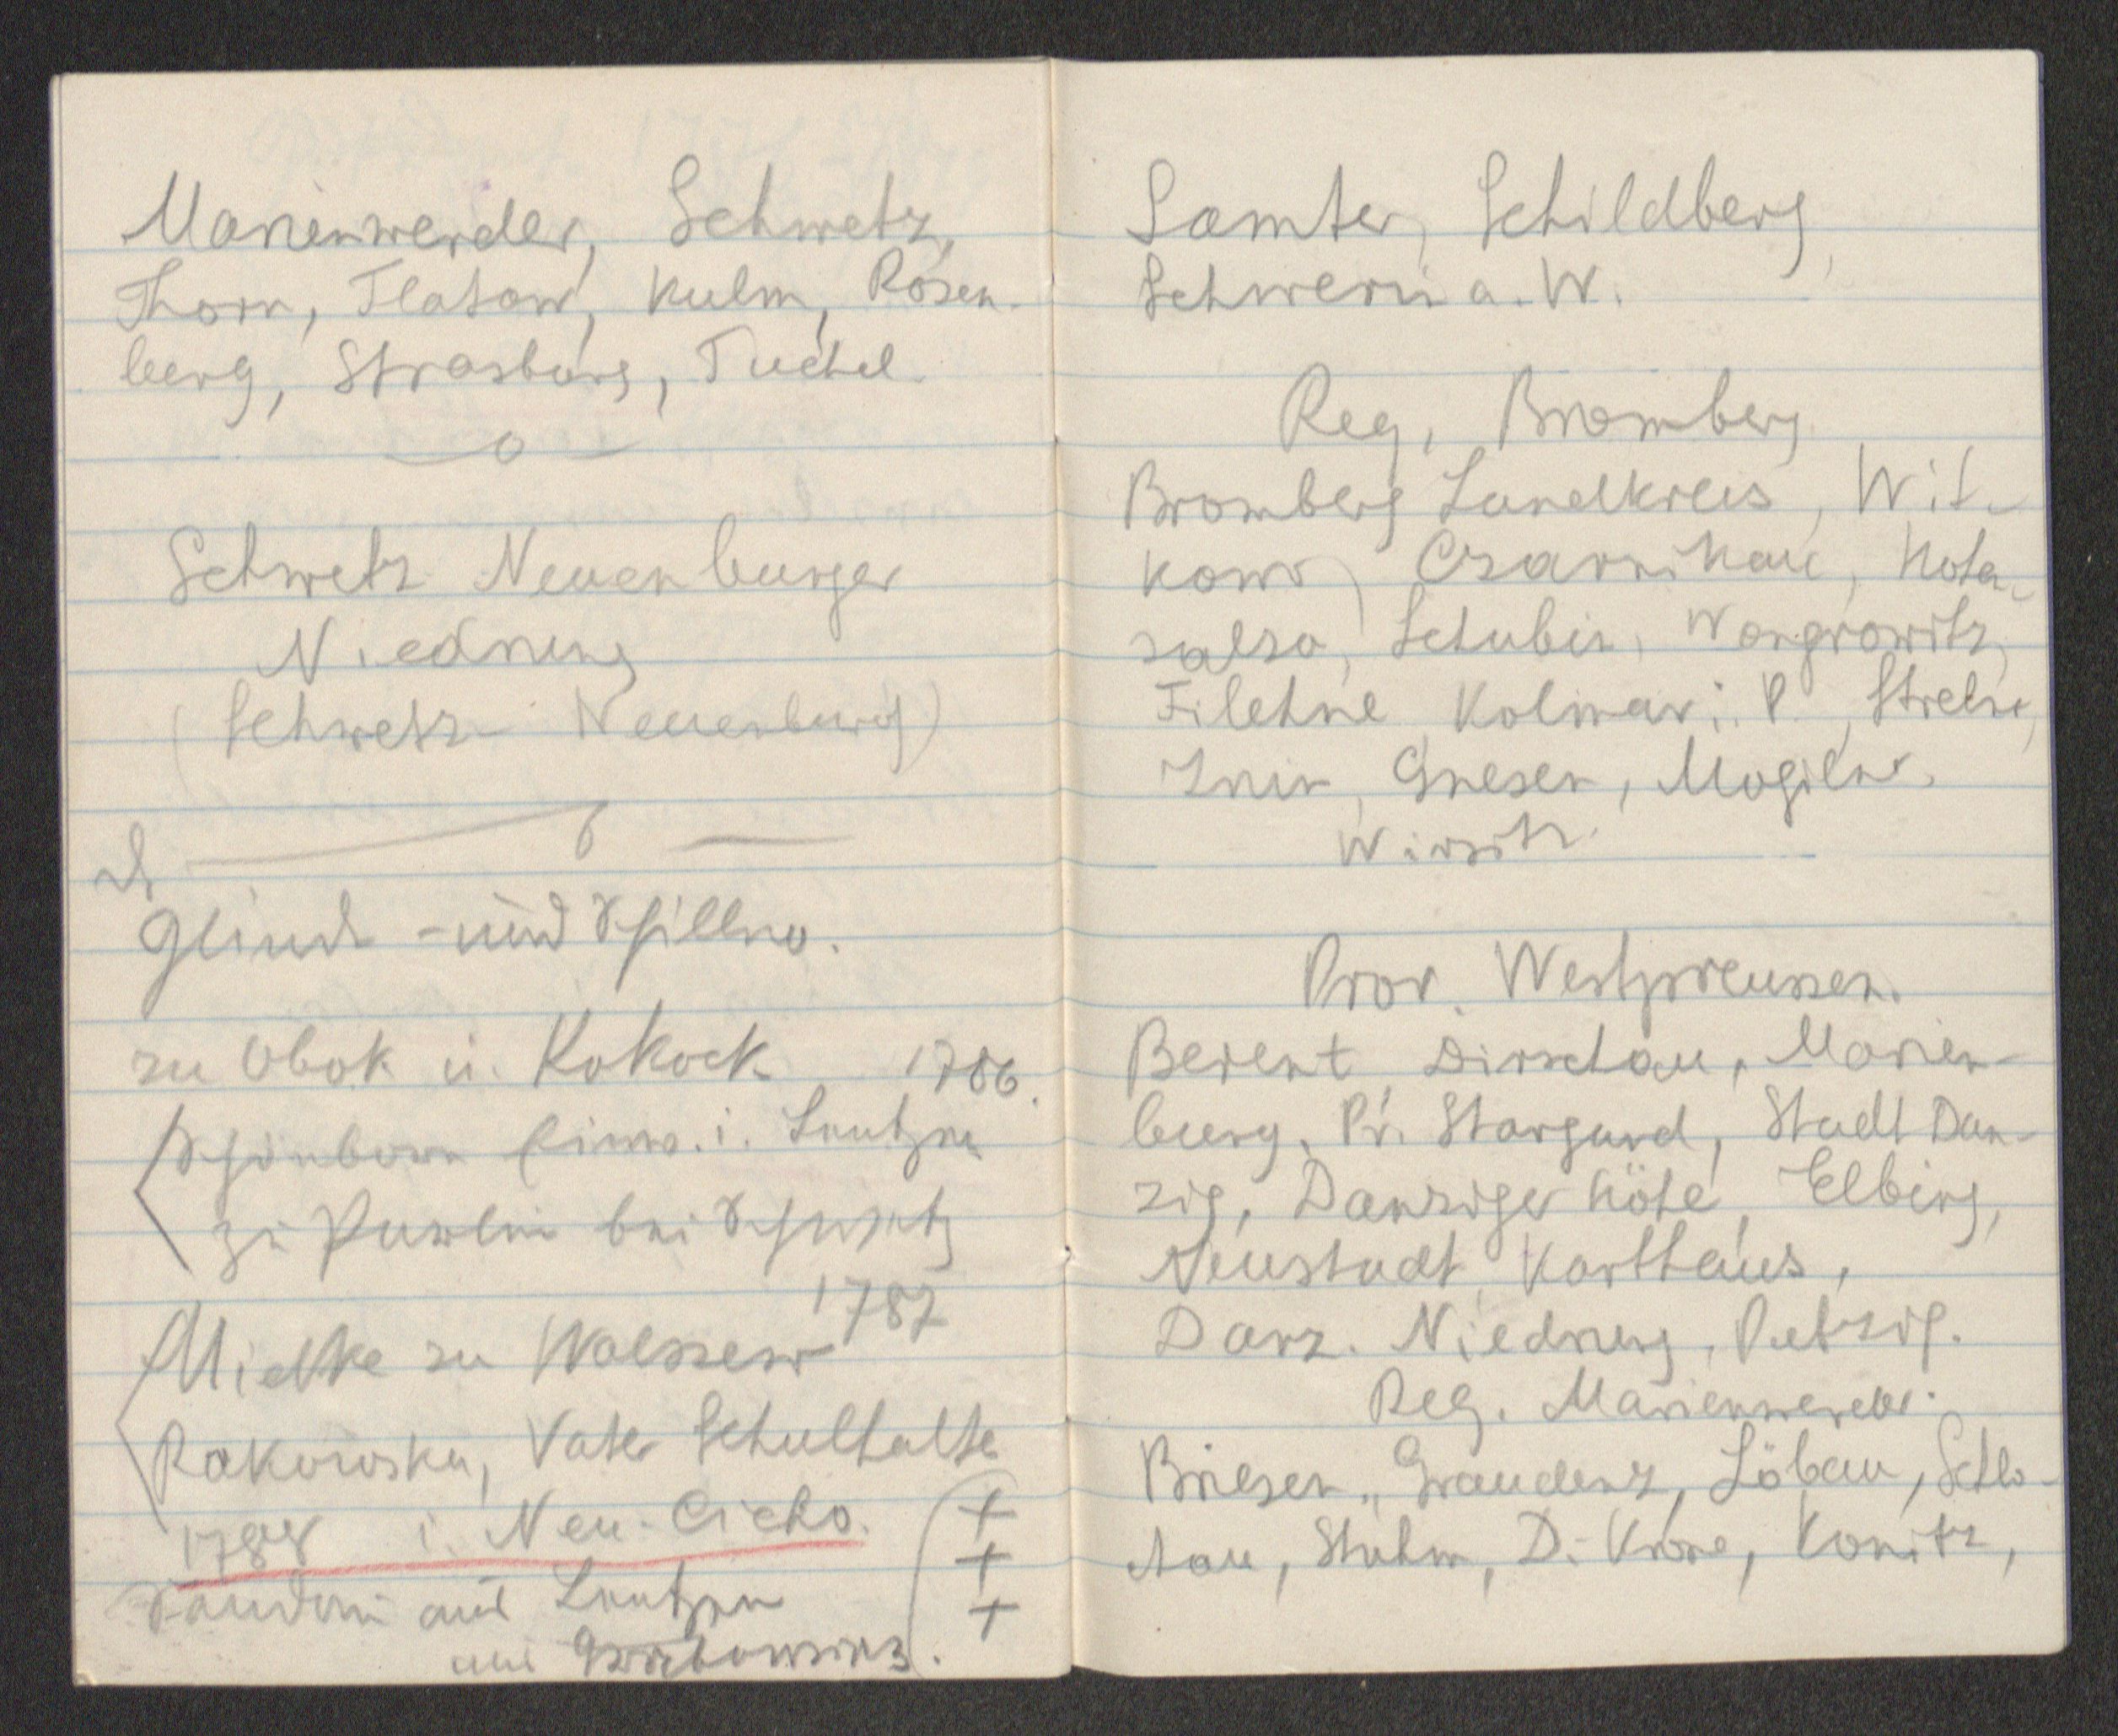 Marienwerder, Schwetz,
Thorn, Flatow, Kulm, Rosen-
berg, Strasburg, Tuchel.
Schwetz Neuenburger
Niedrung
(Schwetz Neuenburg)
Glinck - und Schillno.
zu Obok u. Kokock 1786.
Schönborn
zu bei Schwetz
1787
Mielke zu
Rakowska, Vater Schulhalter
1788 i. Neu-Cielso.
aus
und
+
+
+
Samter, Schildberg,
Schwerin a. W.
Reg. Bromberg
Bromberg Landkreis, Wit-
kowo, Czarnikau, Hohen-
salza, Schubin, Wongrowitz,
Filehne, Kolmar i. P., Strelno,
Znin, Gnesen, Mogilno.
Wirsitz.
Prov. Westpreussen.
Berent, Dirschau, Marien-
burg, Pr. Stargard, Stadt Dan-
zig, Danziger Höhe, Elbing,
Neustadt, Karthaus,
Danz. Niedrung, Putzig.
Reg. Marienwerder.
Briesen, Graudenz, Löbau, Schlo-
chau, Stuhm, D. Krone, Konitz,